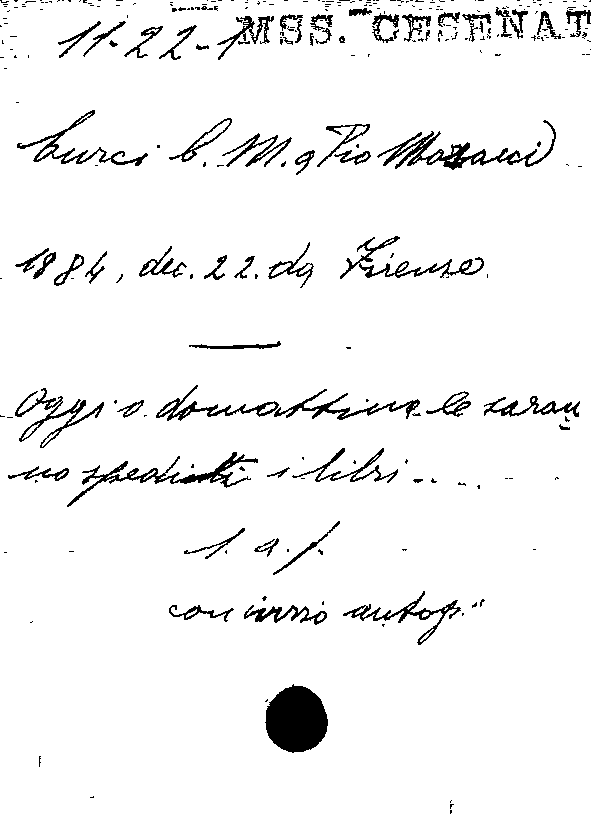 MSS. CESENAT
11-22-1
Curci C. M. a Pio Mazzucci
1884, dec. 22. da Firenze
Oggi o domattina le saran
no spediti i libri ....
1. a. f.
con invio autogr.